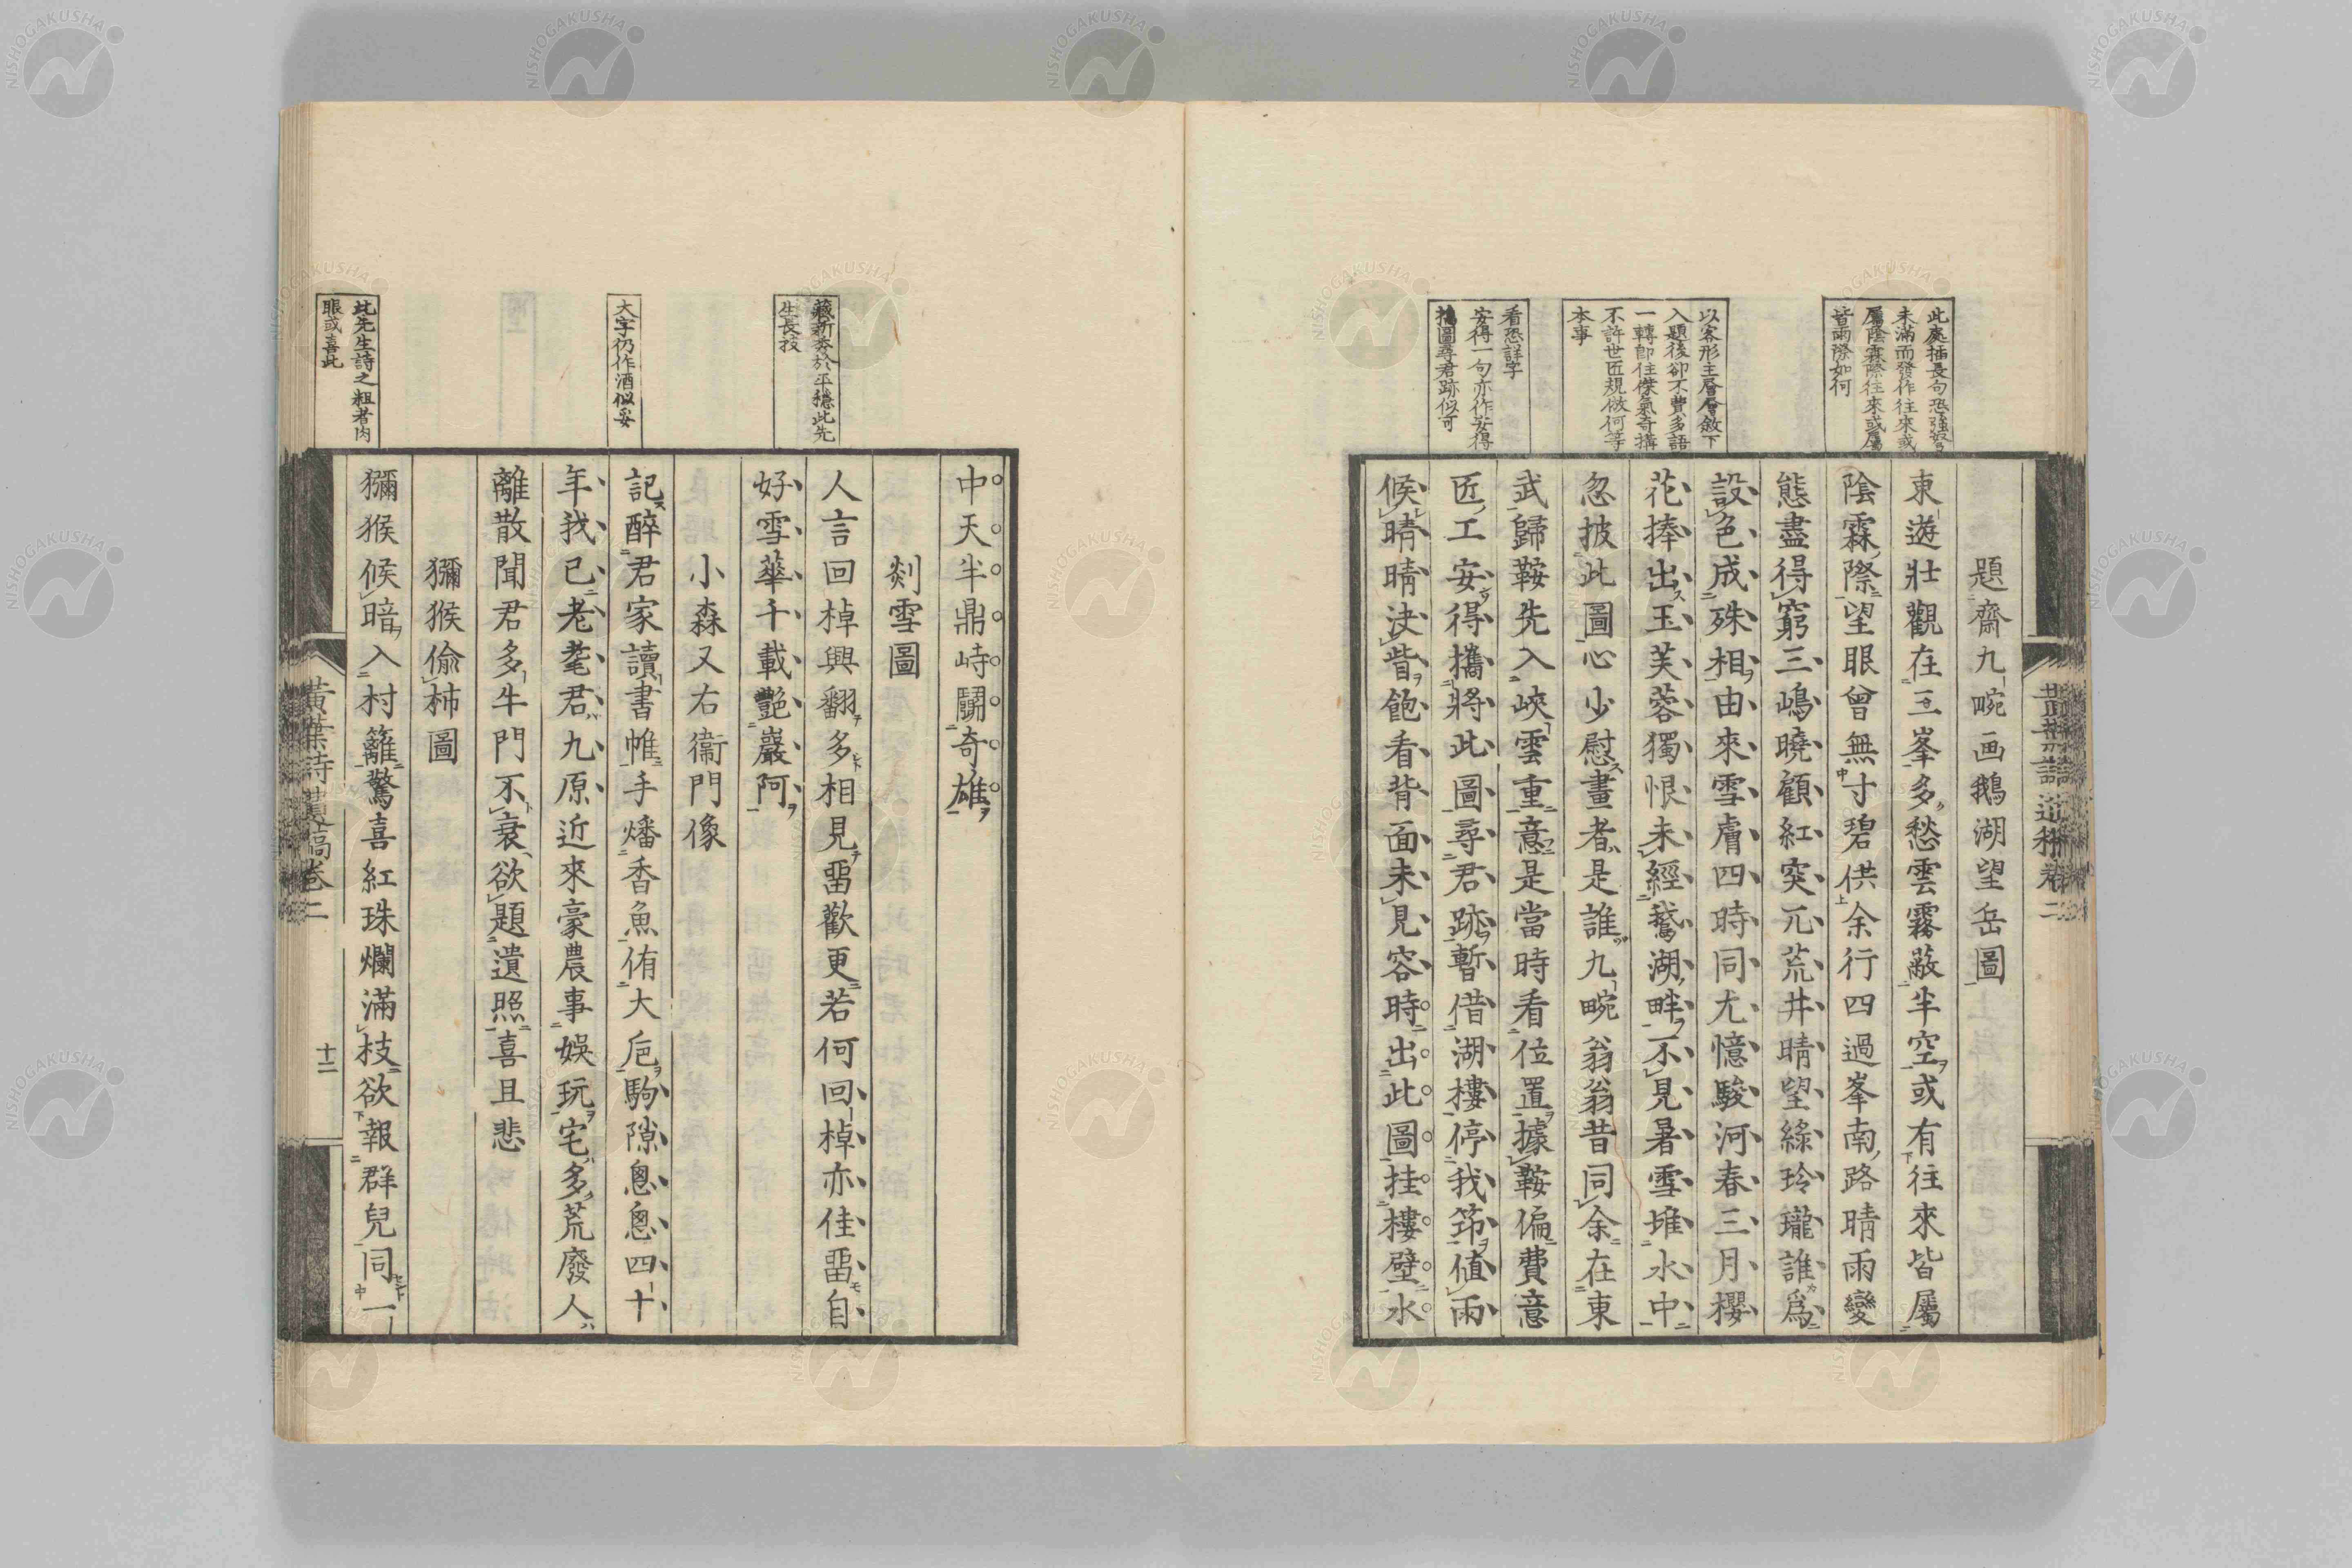 此處插長句恐強弩
未滿而發作往來或
屬陰霖際往來或屬
皆雨際如何
以客形主層層敘下
入題後卻不費多語
一轉卽住傑氣奇搆
不許世匠規倣何等
本事
看恐詳字
安得一句亦作安得
攜圖尋君跡似可
題齋九畹画鵝湖望岳圖
東遊壯觀在三峯多愁雲霧蔽半空或有往來皆屬
陰霖際望眼曾無寸碧供余行四過峯南路晴雨變
態盡得窮三嶋曉顧紅突兀荒井晴望綠玲瓏誰爲
設色成殊相由來雪膚四時同尤憶駿河春三月櫻
花捧出玉芙蓉獨恨未經鵝湖畔不見暑雪堆水中
忽披此圖心少慰畫者是誰九畹翁翁昔同余在東
武歸鞍先入峽雲重意是當時看位置據鞍偏費意
匠工安得攜將此圖尋君跡暫借湖樓停我筇値雨
候晴晴決眥飽看背面未見容時出此圖挂樓壁水
藏新奇於平穩此先
生長技
大字仍作酒似妥
此先生詩之粗者肉
眼或喜此
中天半鼎峙鬪奇雄
剡雪圖
人言回棹興翻多相見畱歡更若何回棹亦佳畱自
好雪華千載艷巖阿
小森又右衞門像
記醉君家讀書帷手燔香魚侑大巵駒隙悤悤四十
年我已老耄君九原近來豪農事娛玩宅多荒廢人
離散聞君多牛門不衰欲題遺照喜且悲
獼猴偷柿圖
獼猴候暗入村籬驚喜紅珠爛滿枝欲報群兒同一
黃葉詩遺稿卷二
十二